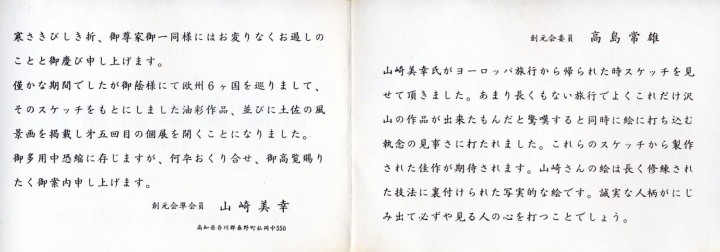 寒さきびしき折、御尊家御一同様にはお変りなくお過しの
ことと御慶び申し上げます。
僅かな期間でしたが御蔭様にて欧州6ヶ国を巡りまして、
そのスケッチをもとにしました油彩作品、並びに土佐の風
景画を掲載し才五回目の個展を開くことになりました。
御多用中恐縮に存じますが、何卒おくり合せ、御高覧賜り
たく御案内申し上げます。
創元会準会員 山崎美幸
高知県吾川郡春野町弘岡中550
創元会委員 高島常雄
山崎美幸氏がヨーロッパ旅行から帰られた時スケッチを見
せて頂きました。あまり長くもない旅行でよくこれだけ沢
山の作品が出来たもんだと驚嘆すると同時に絵に打ち込む
執念の見事さに打たれました。これらのスケッチから製作
された佳作が期待されます。山崎さんの絵は長く修練され
た技法に裏付けられた写実的な絵です。誠実な人柄がにじ
み出て必ずや見る人の心を打つことでしょう。